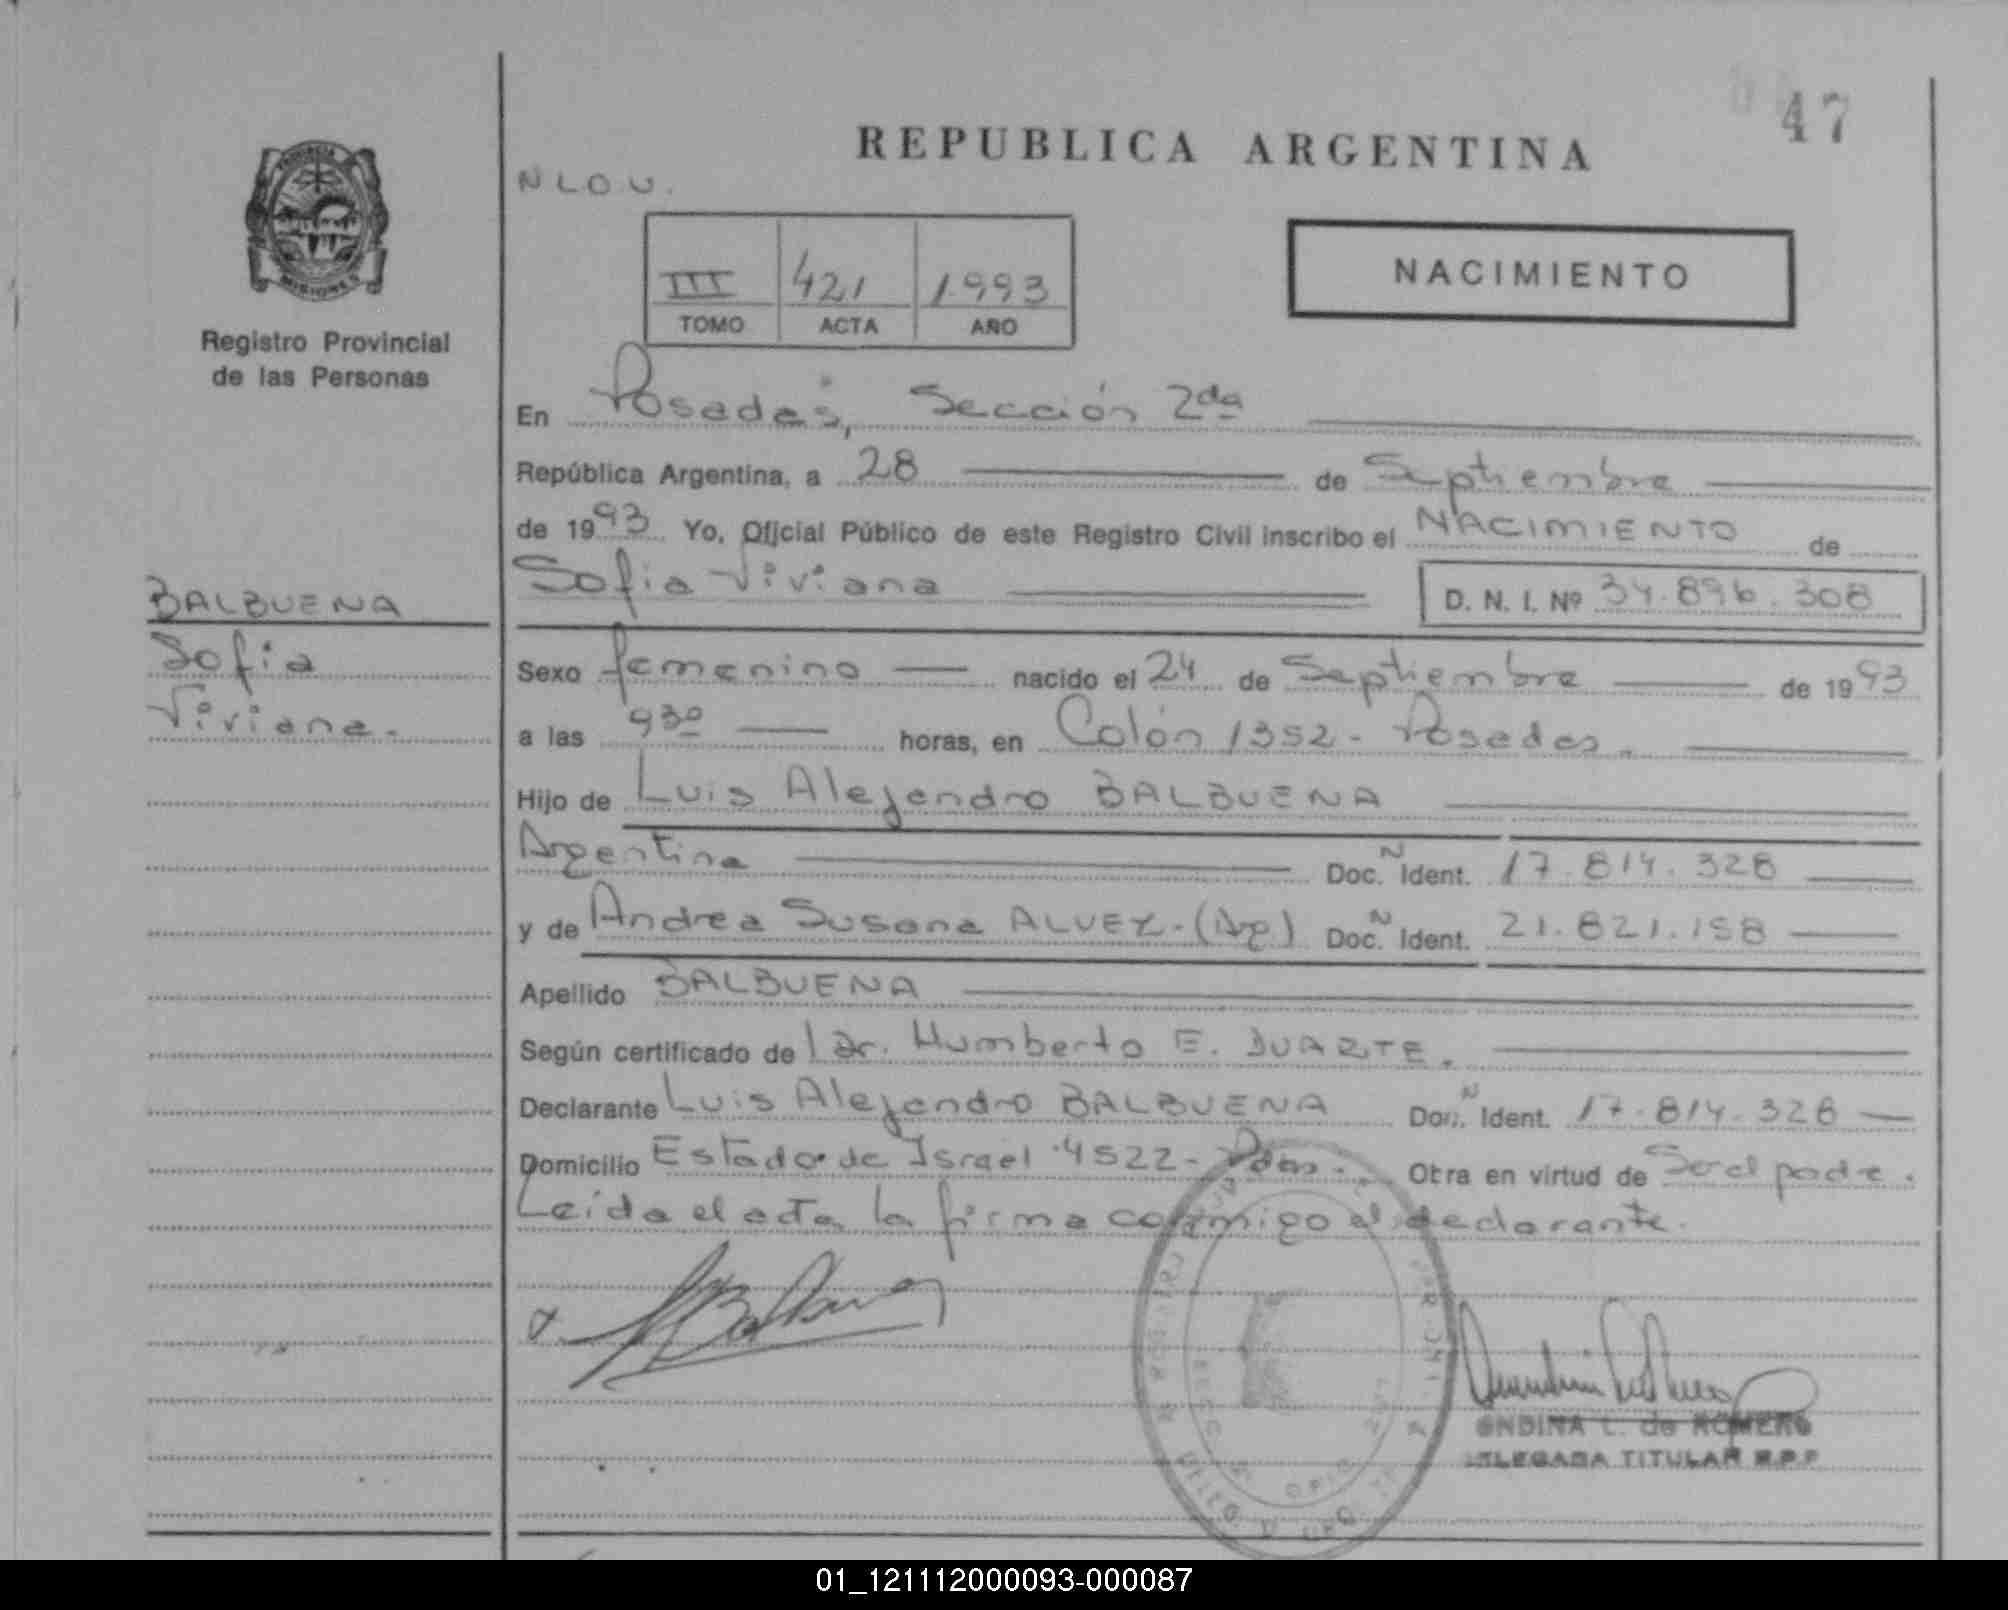 47
REPUBLICA ARGENTINA
N L O U.
PROVINCIA
MISIONES
Registro Provincial
de las Personas
III 421 1.993
TOMO ACTA AÑO
NACIMIENTO
En Posadas, Sección 2da
República Argentina, a 28 de Septiembre
de 1993 Yo, Oficial Público de este Registro Civil inscribo el NACIMIENTO de
Sofia Viviana D. N. I. Nº 34.896.308
BALBUENA
Sofia
Viviana.
Sexo femenino nacido el 24 de Septiembre de 1993
a las 930 horas, en Colón 1352 - Posadas.
Hijo de Luis Alejandro BALBUENA
Argentina Doc. N Ident. 17.814.328
y de Andrea Susana ALVEZ.-(Arg) Doc. N Ident. 21.821.158
Apellido BALBUENA
Según certificado de Dr. Humberto E. DUARTE.
Declarante Luis Alejandro BALBUENA Doc. N Ident. 17.814.328
Domicilio Estado de Israel 4522 - Pdas. Otra en virtud de Ser el padre.
Leída el acta, la firma conmigo el declarante.
ONDINA L. de ROMERO
DELEGADA TITULAR R.P.P
01_121112000093-000087